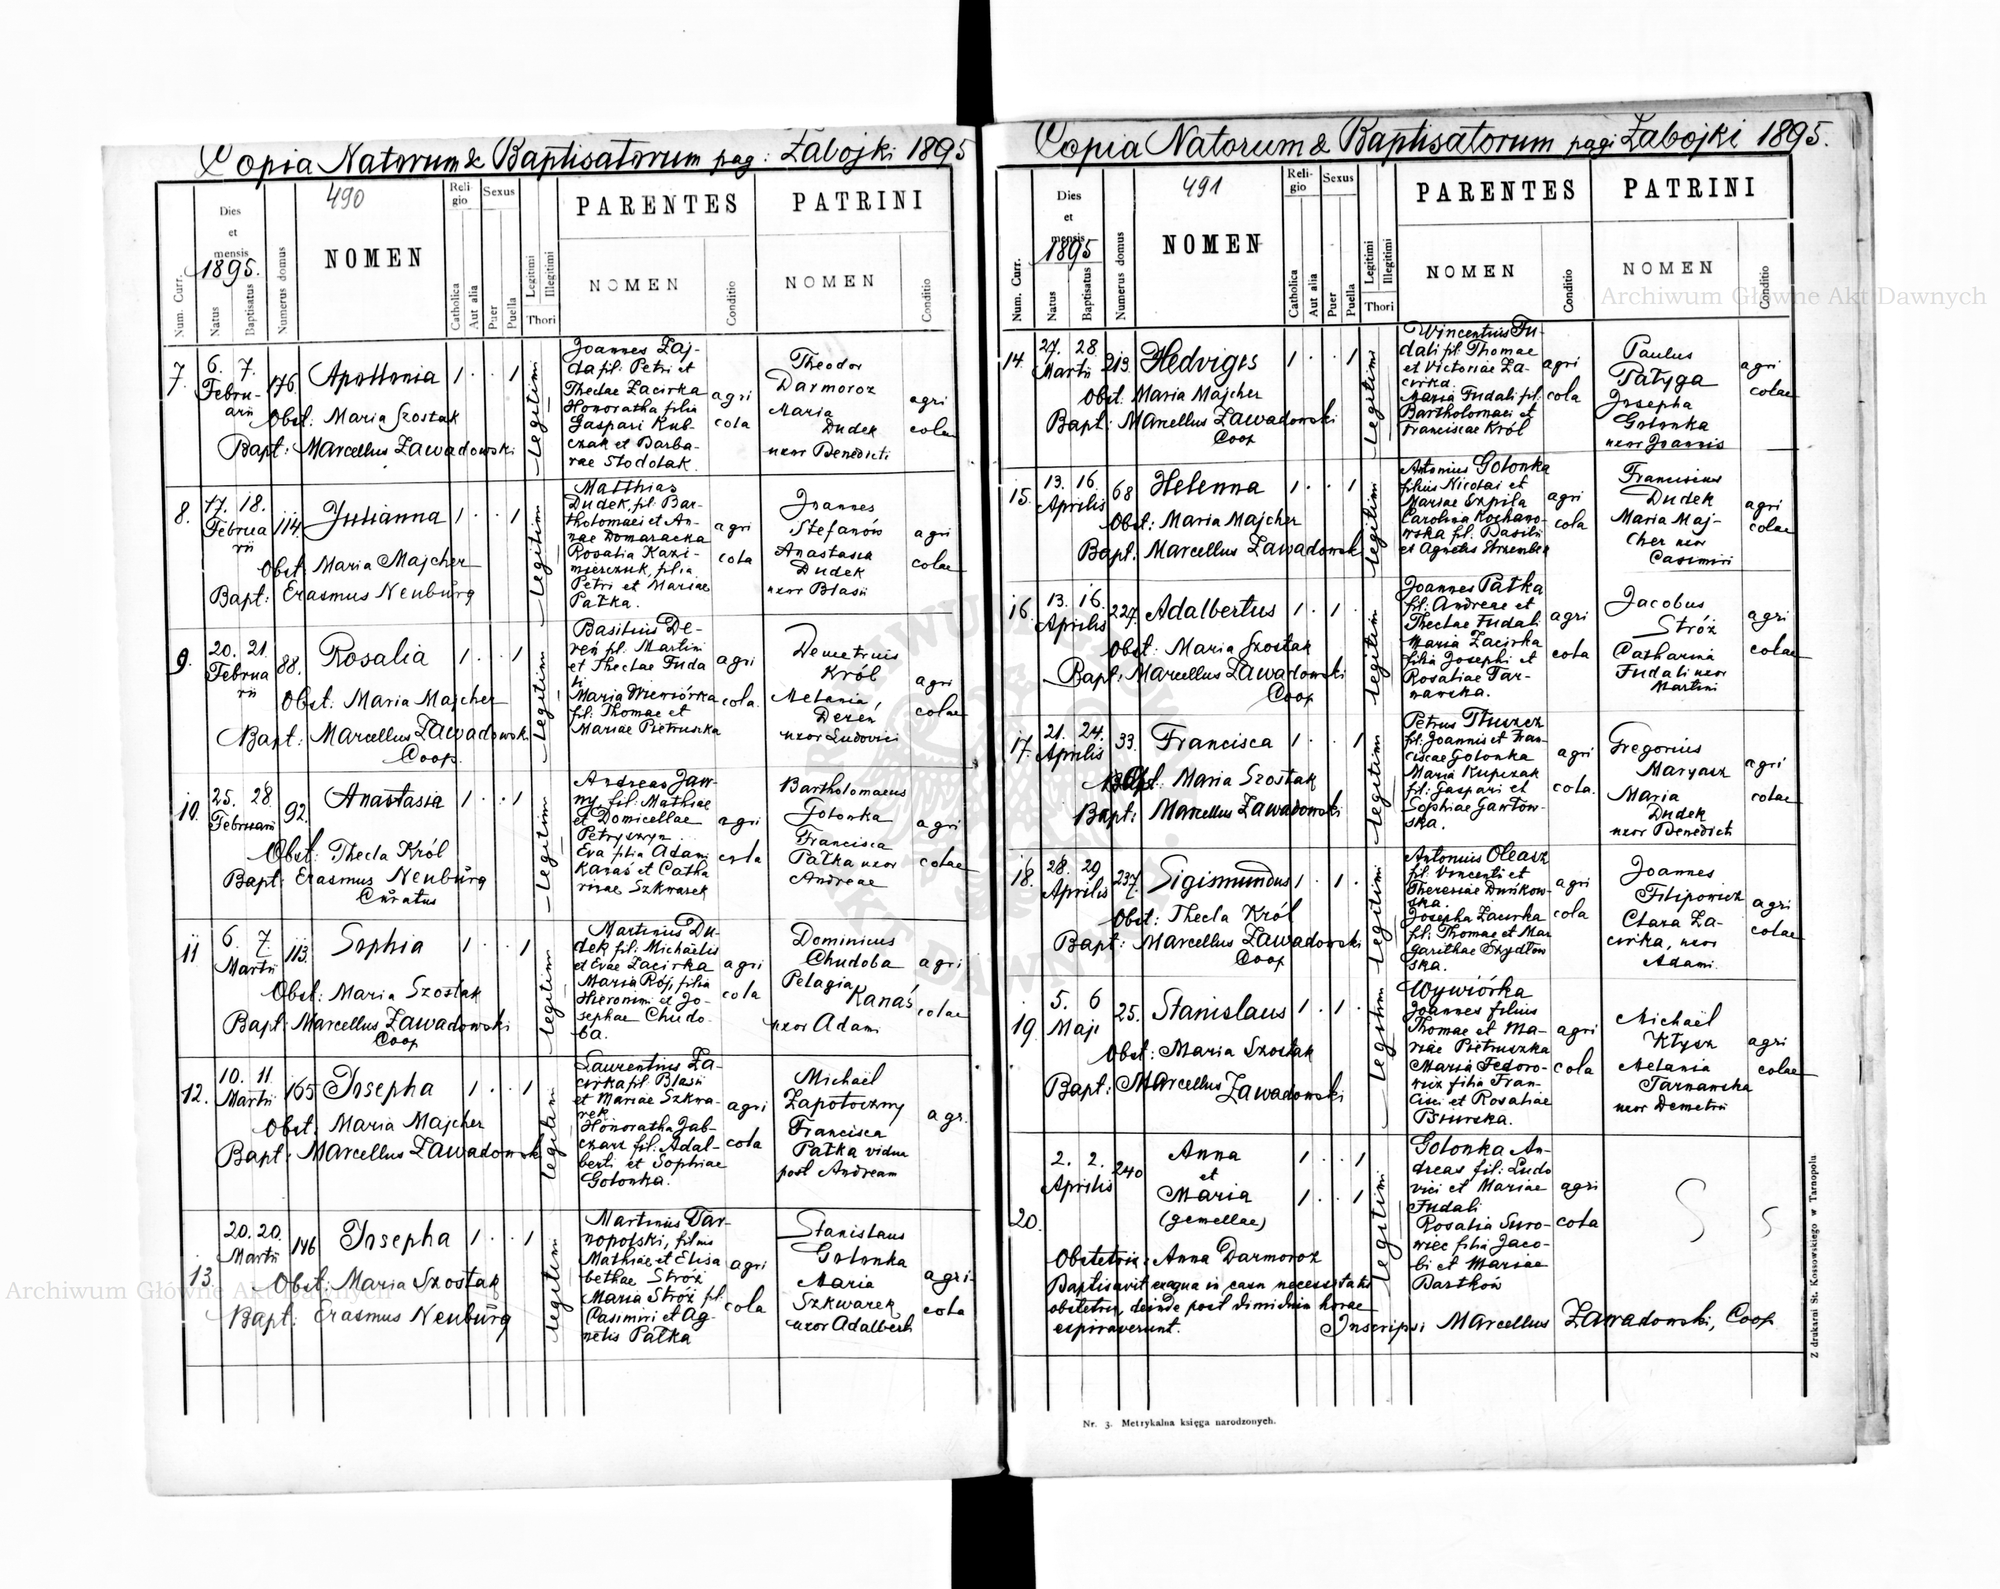 Copia Natorum & Baptisatorum pag: Zabojki 1895
490
Num. Curr.
Dies
et
mensis
1895.
Natus
Baptisatus
Numerus domus
NOMEN
Reli-
gio
Catholica
Aut alia
Sexus
Puer
Puella
Legitimi
Illegitimi
Thori
PARENTES
NOMEN
Conditio
PATRINI
NOMEN
Conditio
7.
6. 7.
Febru-
arii
176.
Apollonia
1 . . 1
Legitimi
Obst: Maria Szostak
Bapt: Marcellus Zawadowski
Joannes Zaj-
da fil. Petri et
Theclae Zacirka
Honoratha filia
Gaspari Kub-
czak et Barba-
rae Stodolak.
agri
cola
Theodor
Darmoroz
Maria
Dudek
uxor Benedicti
agri
colae
8.
17. 18.
Februa
rii
114.
Julianna
1 . . 1
Legitimi
Obst: Maria Majcher
Bapt: Erasmus Neubürg
Matthias
Dudek, fil. Bar-
tholomaei et An-
nae Domaracka
Rosalia Kazi-
mierczuk, filia
Petri et Mariae
Patka.
agri
cola
Joannes
Stefanów
Anastasia
Dudek
uxor Blasii
agri
colae
9.
20. 21.
Februa
rii
88.
Rosalia
1 . . 1
Legitimi
Obst: Maria Majcher
Bapt: Marcellus Zawadowski
Coop.
Basilius De-
reń fil. Martini
et Theclae Fuda
li
Maria Wiewiórka
fil: Thomae et
Mariae Pietruszka
agri
cola.
Demetrius
Król
Melania,
Dereń
uxor Ludovici
agri
colae
10.
25. 28.
Februarii
92.
Anastasia
1 . . 1
Legitimi
Obst: Thecla Król
Bapt: Erasmus Neubürg
Curatus
Andreas Jaw-
ny, fil: Mathiae
et Domicellae
Petryszyn.
Eva filia Adami
Kanaś et Catha
rinae Szkwarek
agri
cola
Bartholomaeus
Gołonka
Francisca
Patka uxor
Andreae
agri
colae
11
6. 7.
Martii
113.
Sophia
1 . . 1
Legitimi
Obst: Maria Szostak
Bapt: Marcellus Zawadowski
Coop
Martinus Du-
dek fil: Michaelis
et Evae Zacirka
Maria Rój, filia
Hieronimi et Jo-
sephae Chudo-
ba.
agri
cola
Dominicus
Chudoba
Pelagia
Kanaś,
uxor Adami
agri
colae
12.
10. 11.
Martii
165
Josepha
1 . . 1
Legitimi
Obst: Maria Majcher
Bapt: Marcellus Zawadowski
Laurentius Za-
cirka fil. Blasii
et Mariae Szkwa-
rek
Honoratha Jab-
czarz fil: Adal-
berti et Sophiae
Gołonka.
agri
cola
Michaël
Zapotoczny
Francisca
Patka vidua
post Andream
agr.
13.
20. 20.
Martii
146
Josepha
1 . . 1
Legitimi
Obst: Maria Szostak
Bapt: Erasmus Neubürg
Martinus Tar-
nopolski, filius
Mathiae et Elisa
bethae Stróż
Maria Stróż fil.
Casimiri et Ag-
netis Patka
agri
cola
Stanislaus
Gołonka
Maria
Szkwarek,
uxor Adalberti
agri-
cola
Copia Natorum & Baptisatorum pagi Zabojki 1895.
491
Num. Curr.
Dies
et
mensis
1895
Natus
Baptisatus
Numerus domus
NOMEN
Reli-
gio
Catholica
Aut alia
Sexus
Puer
Puella
Legitimi
Illegitimi
Thori
PARENTES
NOMEN
Conditio
PATRINI
NOMEN
Conditio
14.
27. 28.
Martii
213.
Hedviges
1 . . 1
Legitimi
Obst. Maria Majcher
Bapt: Marcellus Zawadowski
Coop
Wincentius Fu-
dali fil. Thomae
et Victoriae Za-
cirka.
Maria Fudali fil.
Bartholomaei et
Franciscae Król
agri
cola
Paulus
Pałyga
Josepha
Gołonka
uxor Joannis
agri
colae
15.
13. 16.
Aprilis
68
Helenna
1 . . 1
Legitimi
Obst: Maria Majcher
Bapt: Marcellus Zawadowski
Antonius Gołonka
filius Nicolai et
Mariae Szpila
Carolina Kochano-
wska fil. Basilii
et Agnetis
agri
cola
Franciscus
Dudek
Maria Maj-
cher uxor
Casimiri
agri
colae
16.
13. 16.
Aprilis
227.
Adalbertus
1 . 1 .
Legitimi
Obst: Maria Szostak
Bapt: Marcellus Zawadowski
Coop
Joannes Patka
fil: Andreae et
Theclae Fudali
Maria Zacirka
filia Josephi et
Rosaliae Tar-
nawska.
agri
cola
Jacobus
Stróż
Catharina
Fudali uxor
Martini
agri
colae
17.
21. 24.
Aprilis
33.
Francisca
1 . . 1
Legitimi
Obst. Maria Szostak
Bapt: Marcellus Zawadowski
Petrus Tłuszcz
fil: Joannis et Fran-
ciscae Gołonka
Maria Kupczak
fil: Gaspari et
Sophiae Gawłow-
ska.
agri
cola.
Gregorius
Maryasz
Maria
Dudek
uxor Benedicti
agri
colae
18.
28. 29.
Aprilis
237.
Sigismundus
1 . 1 .
Legitimi
Obst: Thecla Król
Bapt: Marcellus Zawadowski
Coop
Antonius Oleasz
fil. Vincenti et
Theresiae Duńkow-
ska.
Josepha Zacirka
fil: Thomae et Mar
garithae Szydłow
ska.
agri
cola
Joannes
Filipowicz
Clara Za-
cirka, uxor
Adami.
agri
colae
19.
5. 6
Maji
25.
Stanislaus
1 . 1 .
Legitimi
Obst: Maria Szostak
Bapt: Marcellus Zawadowski
Wywiórka
Joannes filius
Thomae et Ma-
riae Pietruszka
Maria Fedoro-
wicz filia Fran-
cisci et Rosaliae
Biurska.
agri
cola
Michaël
Kłysz
Melania
Tarnawska
uxor Demetrii
agri
colae
20.
2. 2.
Aprilis
240
Anna
et
Maria
(gemellae)
1 . . 1
1 . . 1
Legitimi
Obstetrix: Anna Darmoroz
Baptisavit ex aqua in casu necessitatis
obstetrix, deinde post dimidium horae
expiraverunt.
Gołonka An-
dreas fil: Ludo
vici et Mariae
Fudali
Rosalia Suro-
wiec filia Jaco-
bi et Mariae
Bartków
agri
cola
Inscripsi Marcellus Zawadowski, Coop
Nr. 3. Metrykalna księga narodzonych.
Z drukarni St. Kossowskiego w Tarnopolu
Archiwum Główne Akt Dawnych
Archiwum Główne Akt Dawnych